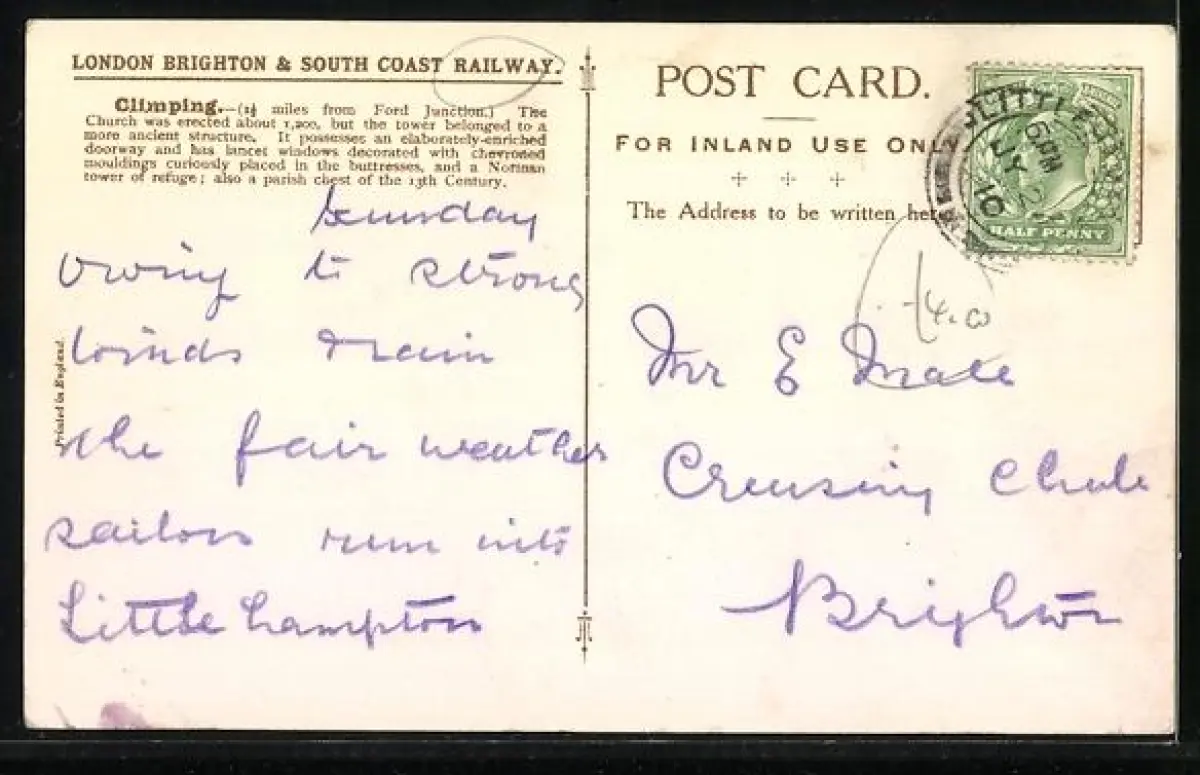 LONDON BRIGHTON & SOUTH COAST RAILWAY.
Climping.—(2½ miles from Ford Junction.) The
Church was erected about 1,200, but the tower belonged to a
more ancient structure. It possesses an elaborately-enriched
doorway and has lancet windows decorated with chevroned
mouldings curiously placed in the buttresses, and a Norman
tower of refuge; also a parish chest of the 13th Century.
Sunday
Owing to strong
winds & rain
the fair weather
sailors run into
Littlehampton
Printed in England.
POST CARD.
FOR INLAND USE ONLY
The Address to be written here.
HALF PENNY
6 PM
JY 
10
Mr E Male
Cruising Club
Brighton